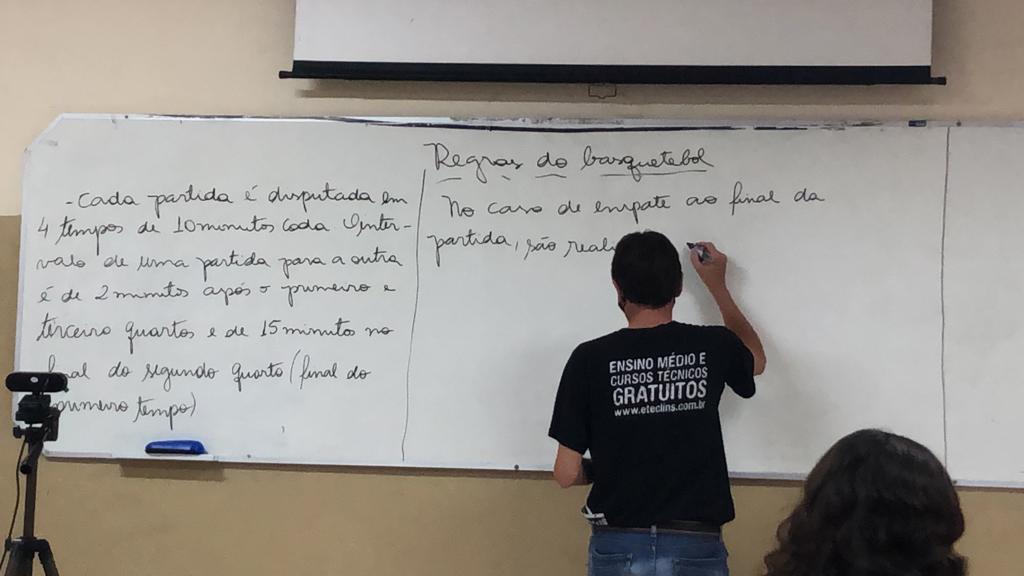 Regras do basquetebol
- Cada partida é disputada em
4 tempos de 10 minutos cada Inter-
valo de uma partida para a outra
é de 2 minutos após o primeiro e
terceiro quartos e de 15 minutos no
final do segundo quarto (final do
primeiro tempo)
No caso de empate ao final da
partida, são reali
ENSINO MÉDIO E
CURSOS TÉCNICOS
GRATUITOS
www.eteclins.com.br